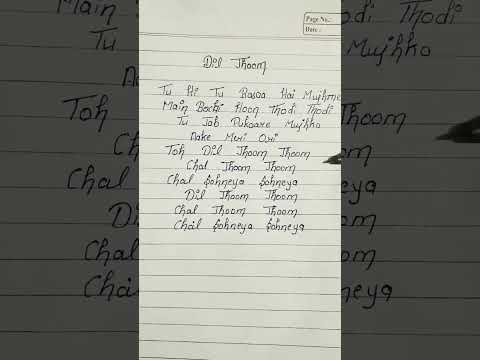 Page No.:
Date:
Dil Jhoom
Tu Hi Tu Basaa Hai Mujhme
Main Bachi Hoon Thodi Thodi
Tu Jab Pukaare Mujhko
Aake Meri Ori
Toh Dil Jhoom Jhoom
Chal Jhoom Jhoom
Chal Sohneya Sohneya
Dil Jhoom Jhoom
Chal Jhoom Jhoom
Chal Sohneya Sohneya